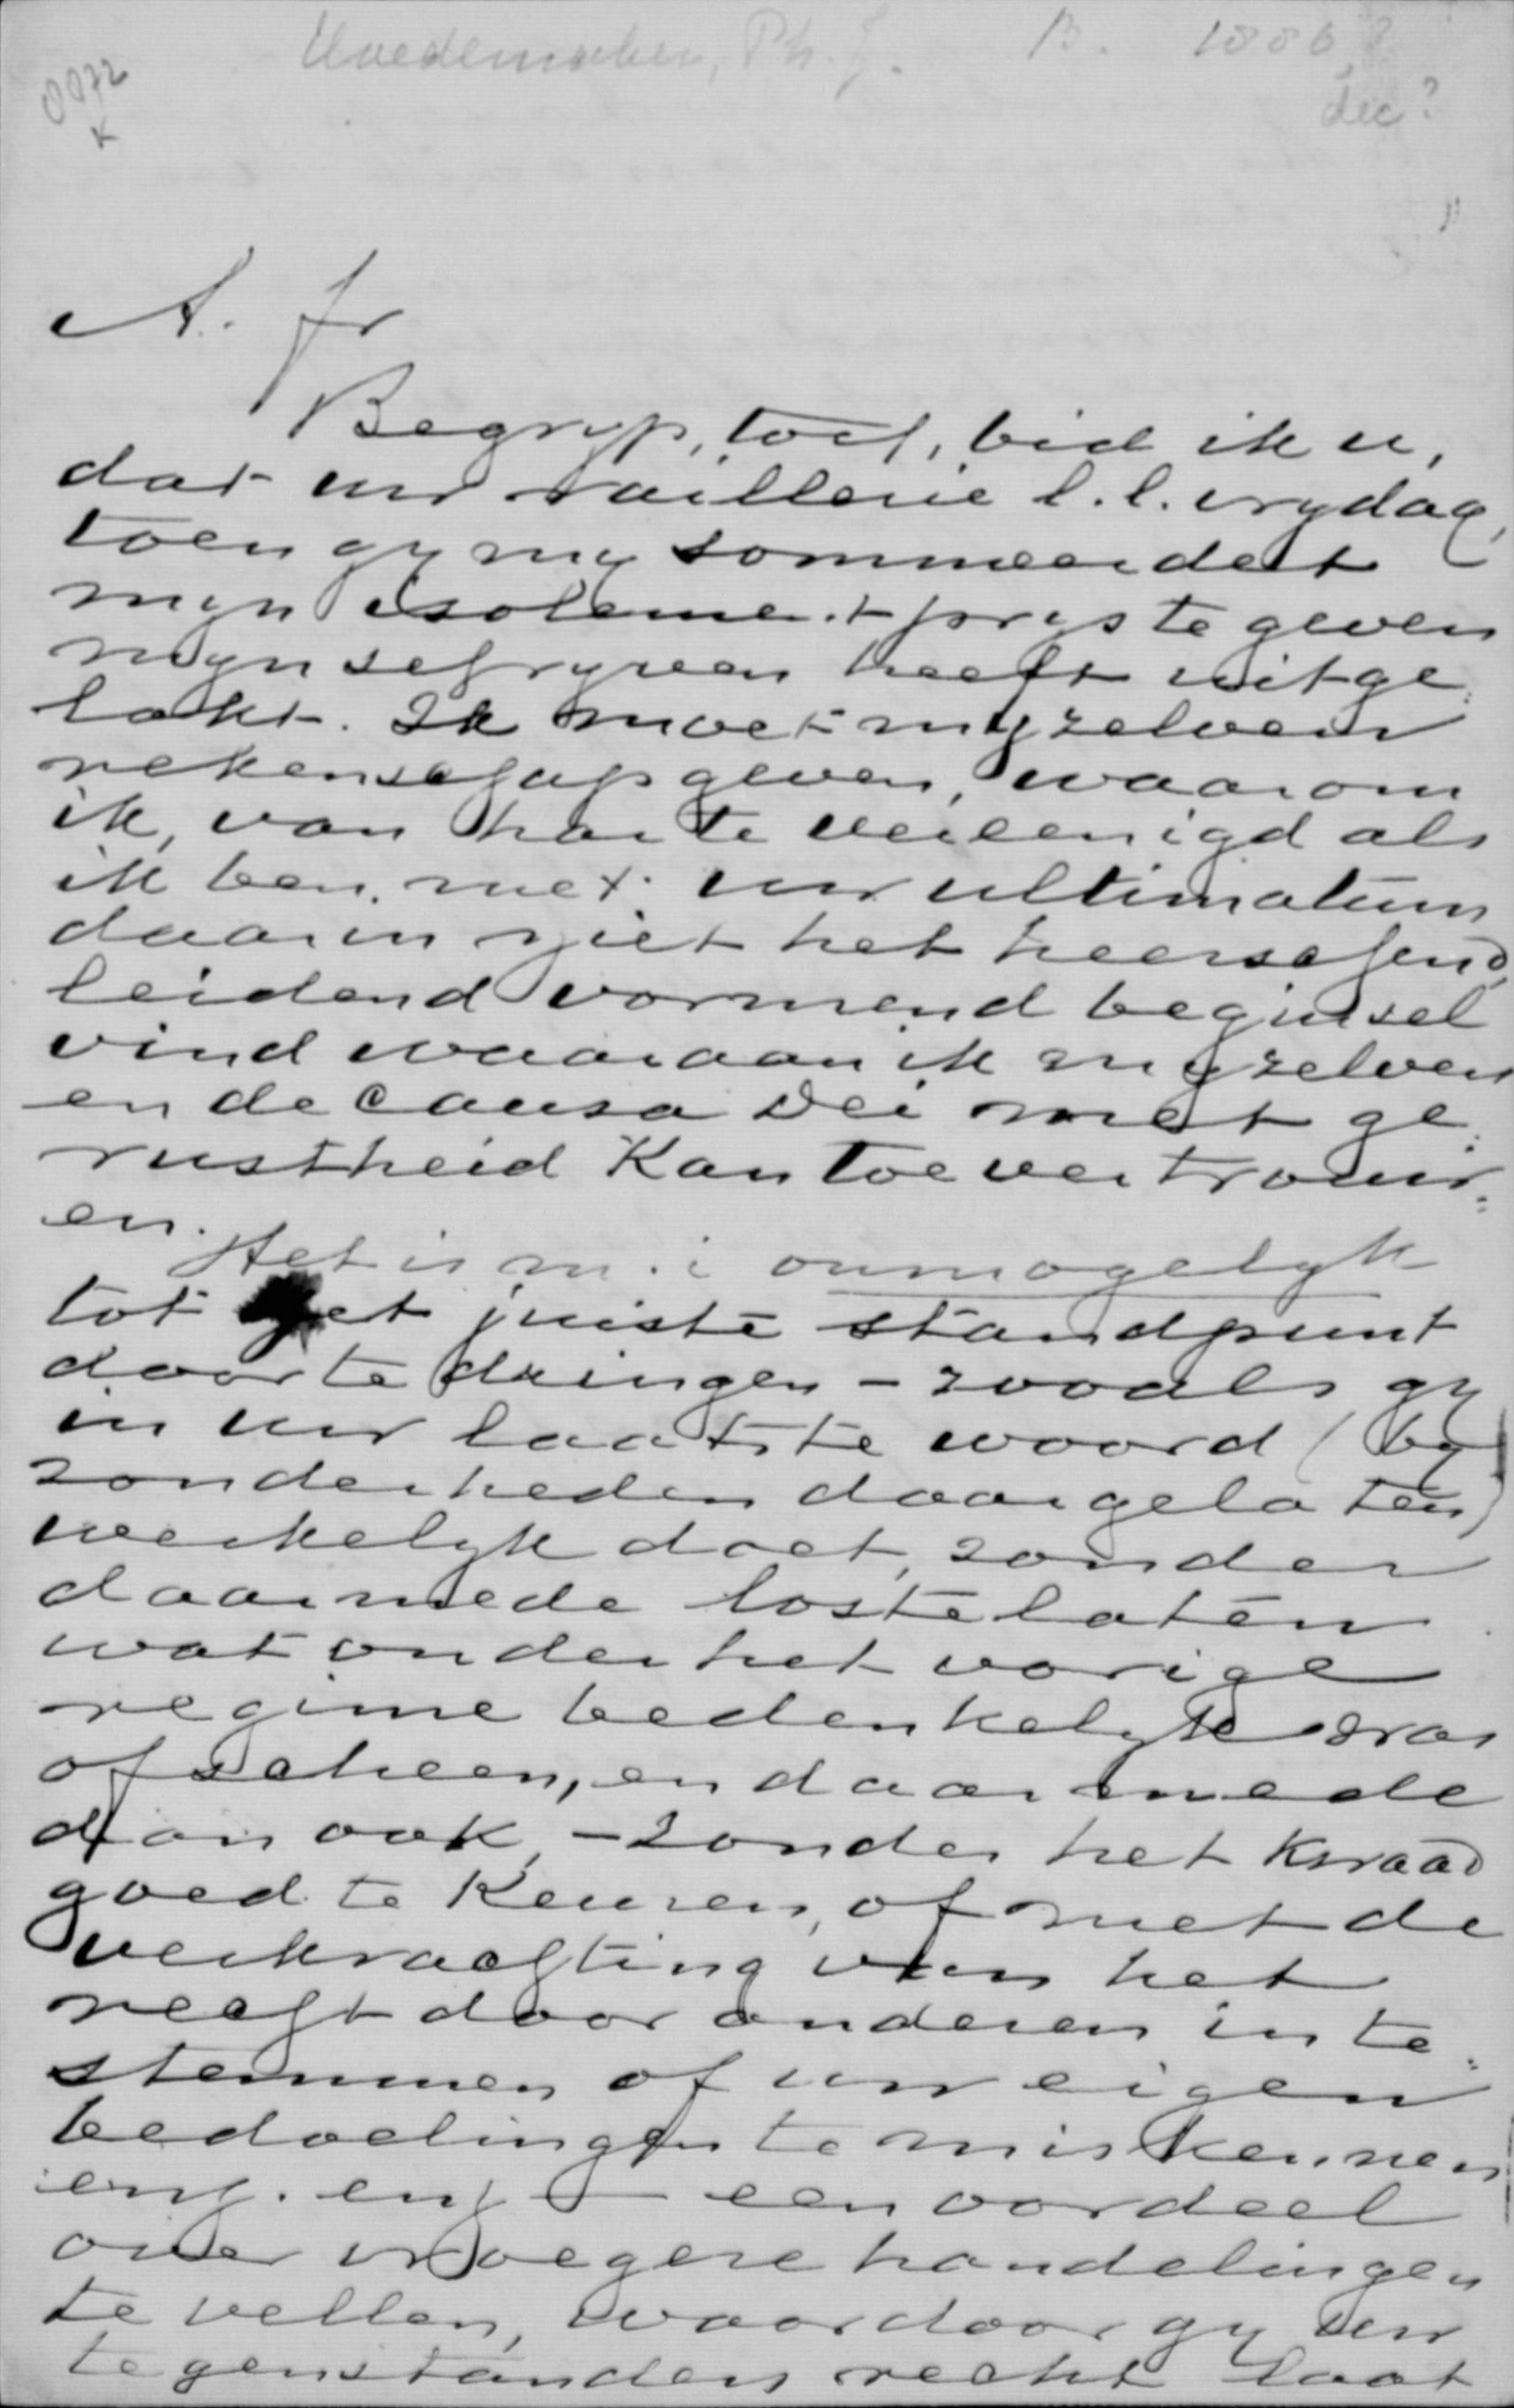 Hoedemaker, Ph. J. B. 1886?
dec?
0072
x
A. fr
Begryp, toch, bid ik u,
dat uw raillerie l.l. vrydag,
toen gy my sommeerdet
myn isolement prys te geven
myn schryven heeft uitge:
lokt. Ik moet my zelven
rekenschap geven, waarom
ik, van harte vereenigd als
ik ben, met uw ultimatum
daarin niet het heerschend,
leidend vormend beginsel
vind waaraan ik my zelven
en de causa Dei met ge:
rustheid kan toevertrouw:
en.
Het is m.i onmogelyk
tot het juiste standpunt
door te dringen - zooals gy
in uw laatste woord (by
zonderheden daargelaten)
werkelyk doet, zonder
daarmede los te laten
wat onder het vorige
regime bedenkelyk was
of scheen, en daarmede
dan ook, - zonder het kwaad
goed te keuren, of met de
verkrachting van het
recht door anderen in te:
stemmen of uw eigen
bedoelingen te miskennen
enz. enz - een oordeel
over vroegere handelingen
te vellen, waardoor gy uw
tegenstanders recht laat